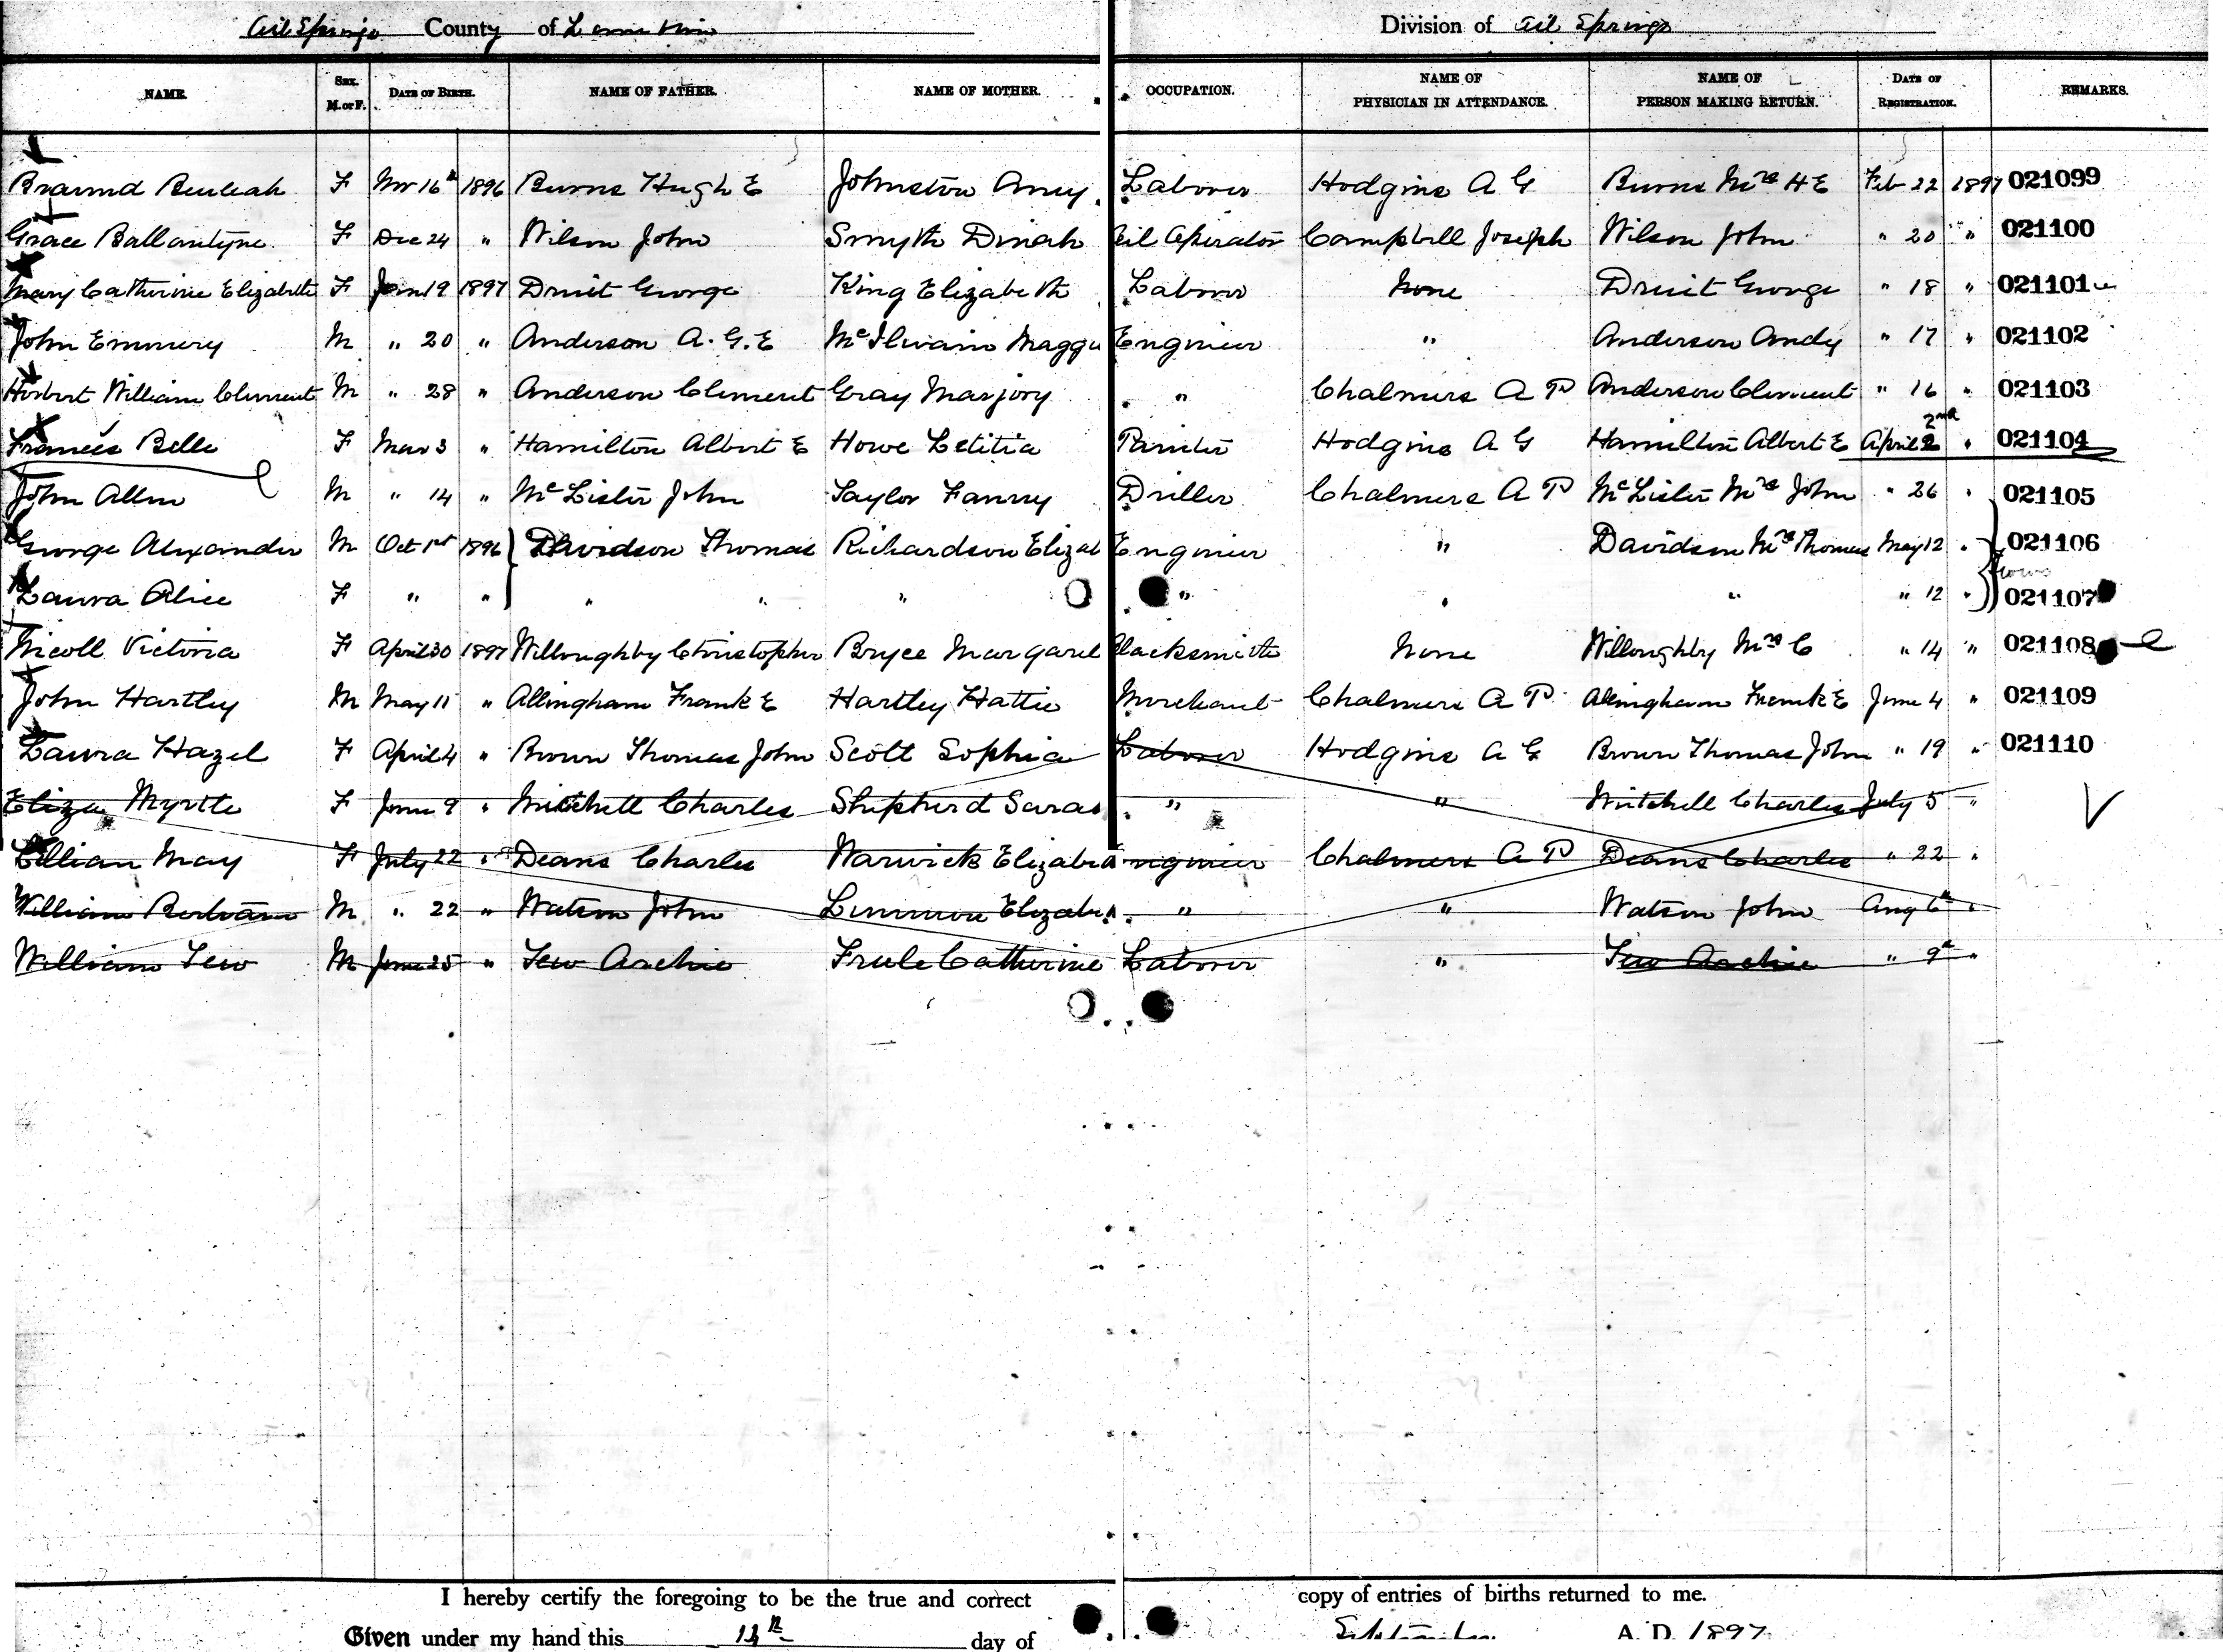 Oil Springs County of Lambton Division of Oil Springs
NAME. SEX. M. or F. DATE OF BIRTH. NAME OF FATHER. NAME OF MOTHER. OCCUPATION. NAME OF PHYSICIAN IN ATTENDANCE. NAME OF PERSON MAKING RETURN. DATE OF REGISTRATION. REMARKS.
Beulah F Nov 16th 1896 Burns Hugh E Johnston Amy Laborer Hodgins A G Burns Mrs H E Feb 22 1897 021099
Grace Ballantyne F Dec 24 " Wilson John Smyth Dinah Oil Operator Campbell Joseph Wilson John " 20 " 021100
Mary Catherine Elizabeth F Jan 19 1897 Druit George King Elizabeth Laborer None Druit George " 18 " 021101
John Emmery M " 20 " Anderson A. G. E McIlwain Maggie Engineer " Anderson Andy " 17 " 021102
Herbert William Clement M " 28 " Anderson Clement Gray Marjory " Chalmers A P Anderson Clement " 16 " 021103
Frances Belle F Mar 3 " Hamilton Albert E Howe Letitia Painter Hodgins A G Hamilton Albert E April 2nd " 021104
John Allen M " 14 " McLister John Taylor Fanny Driller Chalmers A P McLister Mrs John " 26 " 021105
George Alexander M Oct 1st 1896 Davidson Thomas Richardson Elizab Engineer " Davidson Mrs Thomas May 12 " 021106
Laura Alice F " " " " " " " " " 12 " 021107
Nicoll Victoria F April 30 1897 Willoughby Christopher Bryce Margaret Blacksmith None Willoughby Mrs C " 14 " 021108
John Hartley M May 11 " Allingham Frank E Hartley Hattie Merchant Chalmers A P Allingham Frank E June 4 " 021109
Laura Hazel F April 4 " Brown Thomas John Scott Sophia Laborer Hodgins A G Brown Thomas John " 19 " 021110
Eliza Myrtle F June 9 " Mitchell Charles Shepherd Sarah " " Mitchell Charles July 5 "
Lillian May F July 22 " Deans Charles Warwick Elizabeth Engineer Chalmers A P Deans Charles " 22 "
William Bertram M " 22 " Watson John Elizabeth " " Watson John Aug 6th "
William Tew M June 25 " Tew Archie Catherine Laborer " Tew Archie " 9th "
I hereby certify the foregoing to be the true and correct copy of entries of births returned to me.
Given under my hand this day of September A. D. 1897